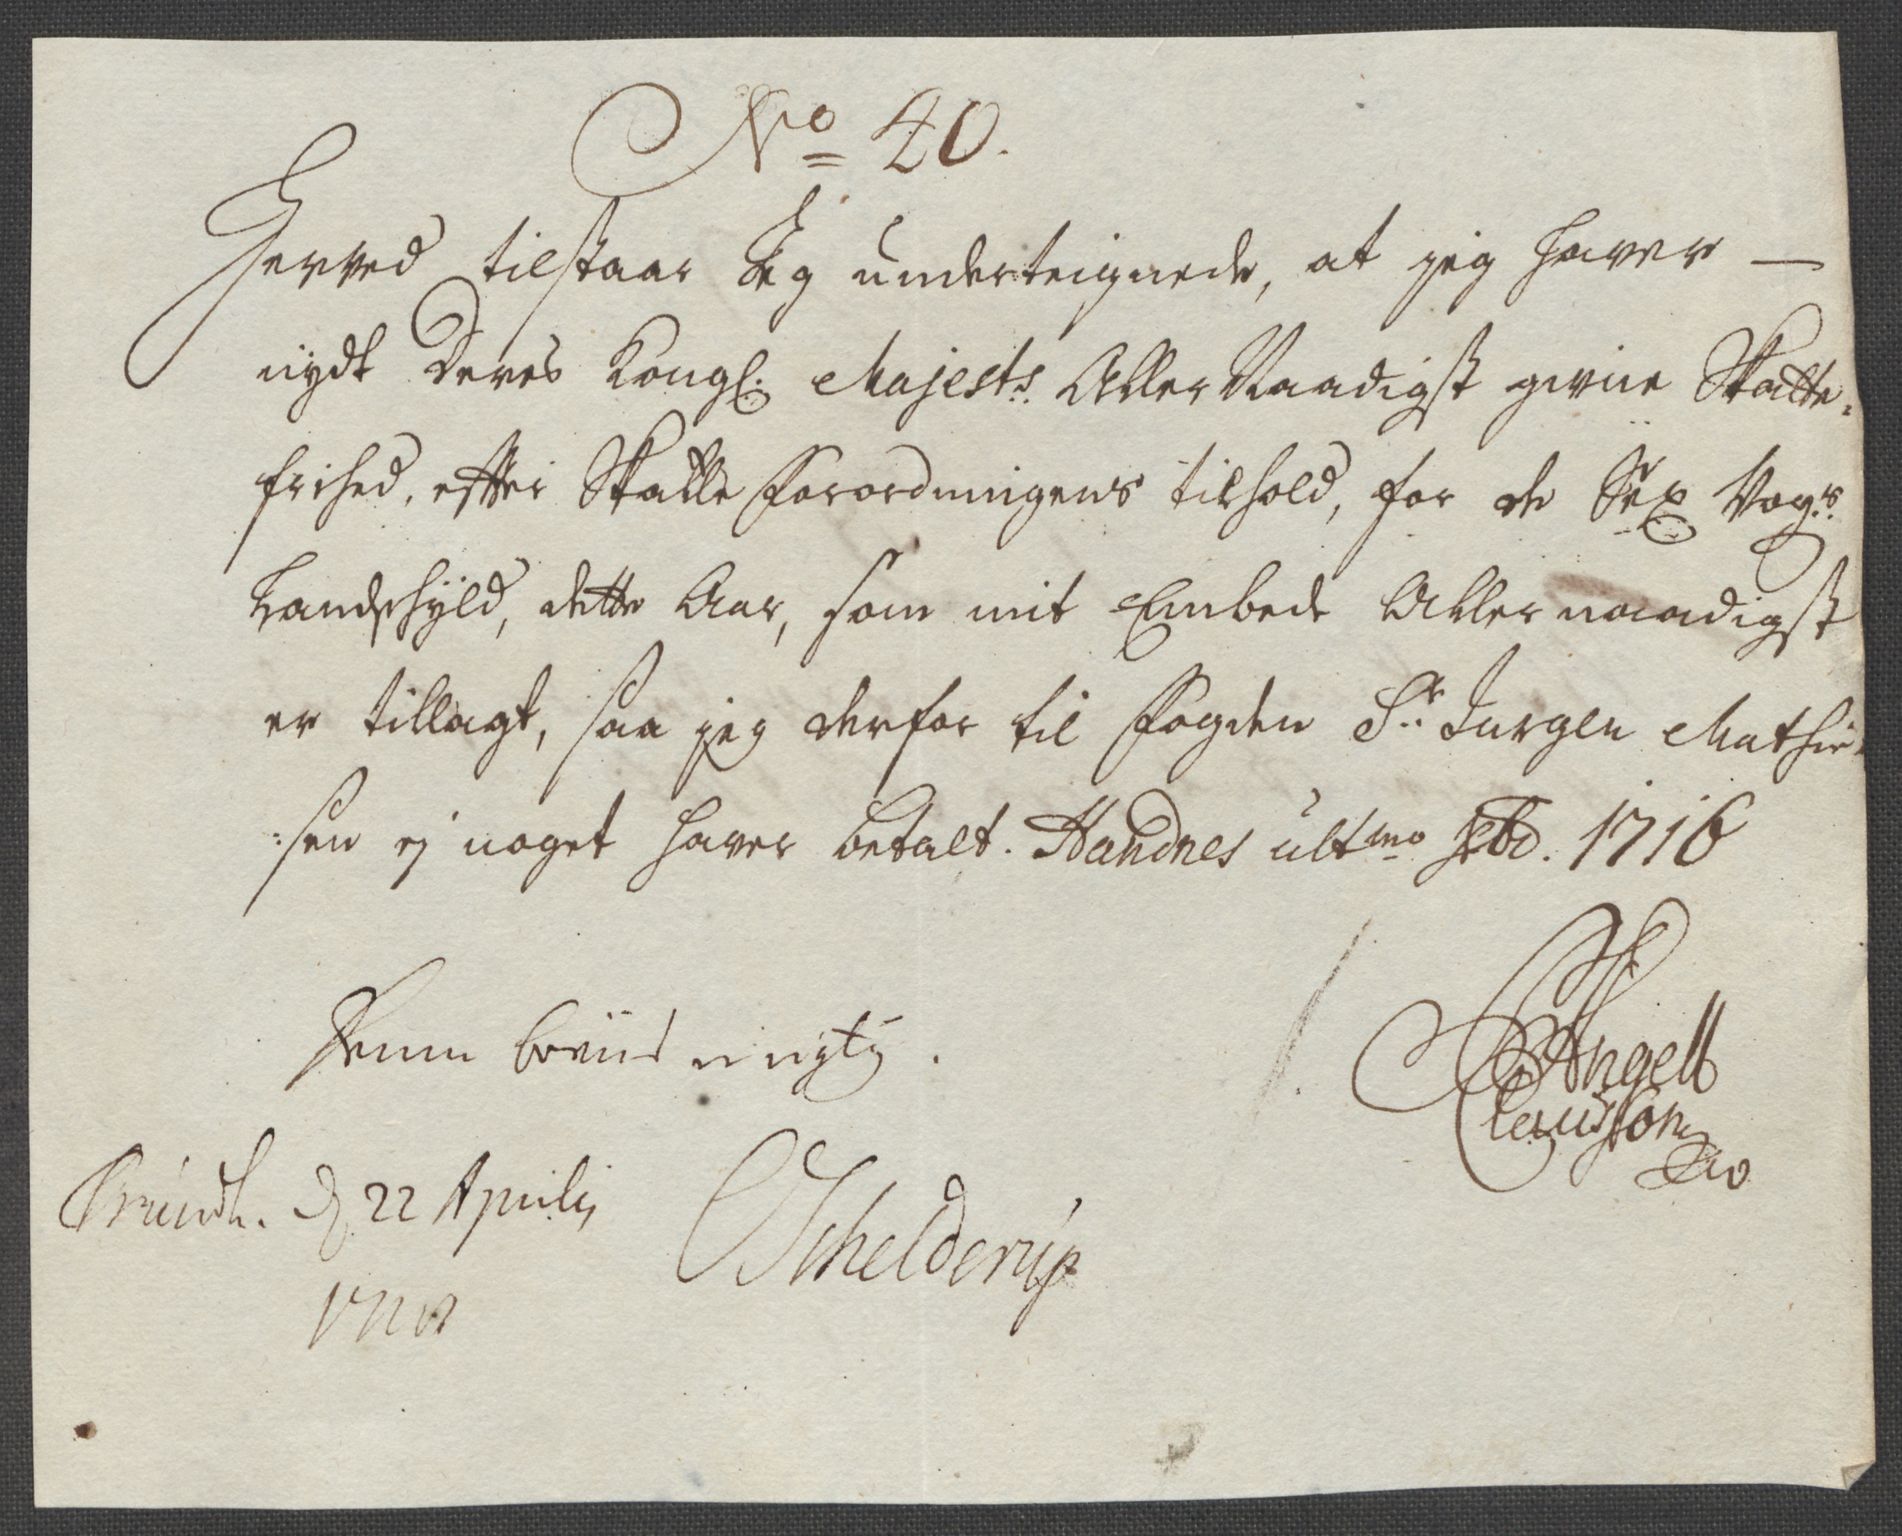 No 40.
Herved tilstaar Jeg underteignede, at jeg haver —
nydt Deres Kongl: Majests: Aller Naadigst givne Skatte-
frihed, effter Skatte Forordningens tilhold, for de Sex Vog:r
Landschyld, dette Aar, som mit Embede Allernaadigst
er tillagt, saa jeg derfor til Fogden Sr. Jurgen Mathie-
:sen ej noget haver betalt. Handnes ultmo 1716
Angell
Claussøn
Trundh. d 22 Aprilij
Schelderup